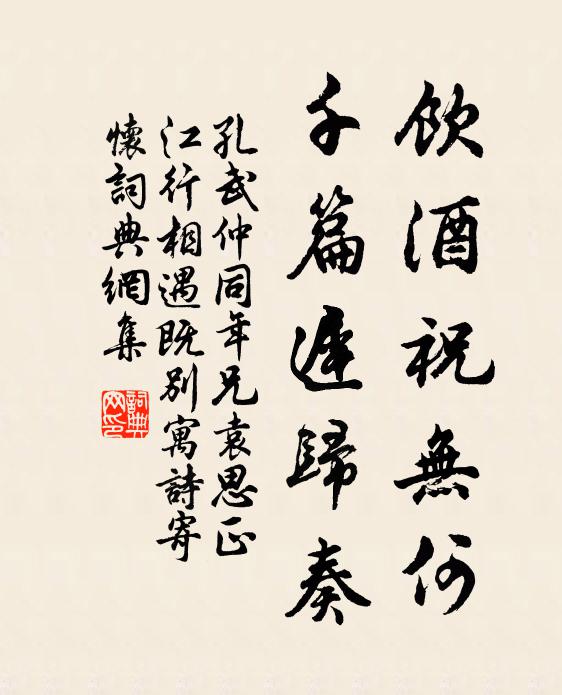 飲酒祝無何
千篇遲歸奏
孔武仲同年兄袁思正
江行相遇既別寓詩寄
懷詞典網集
詞典
网印